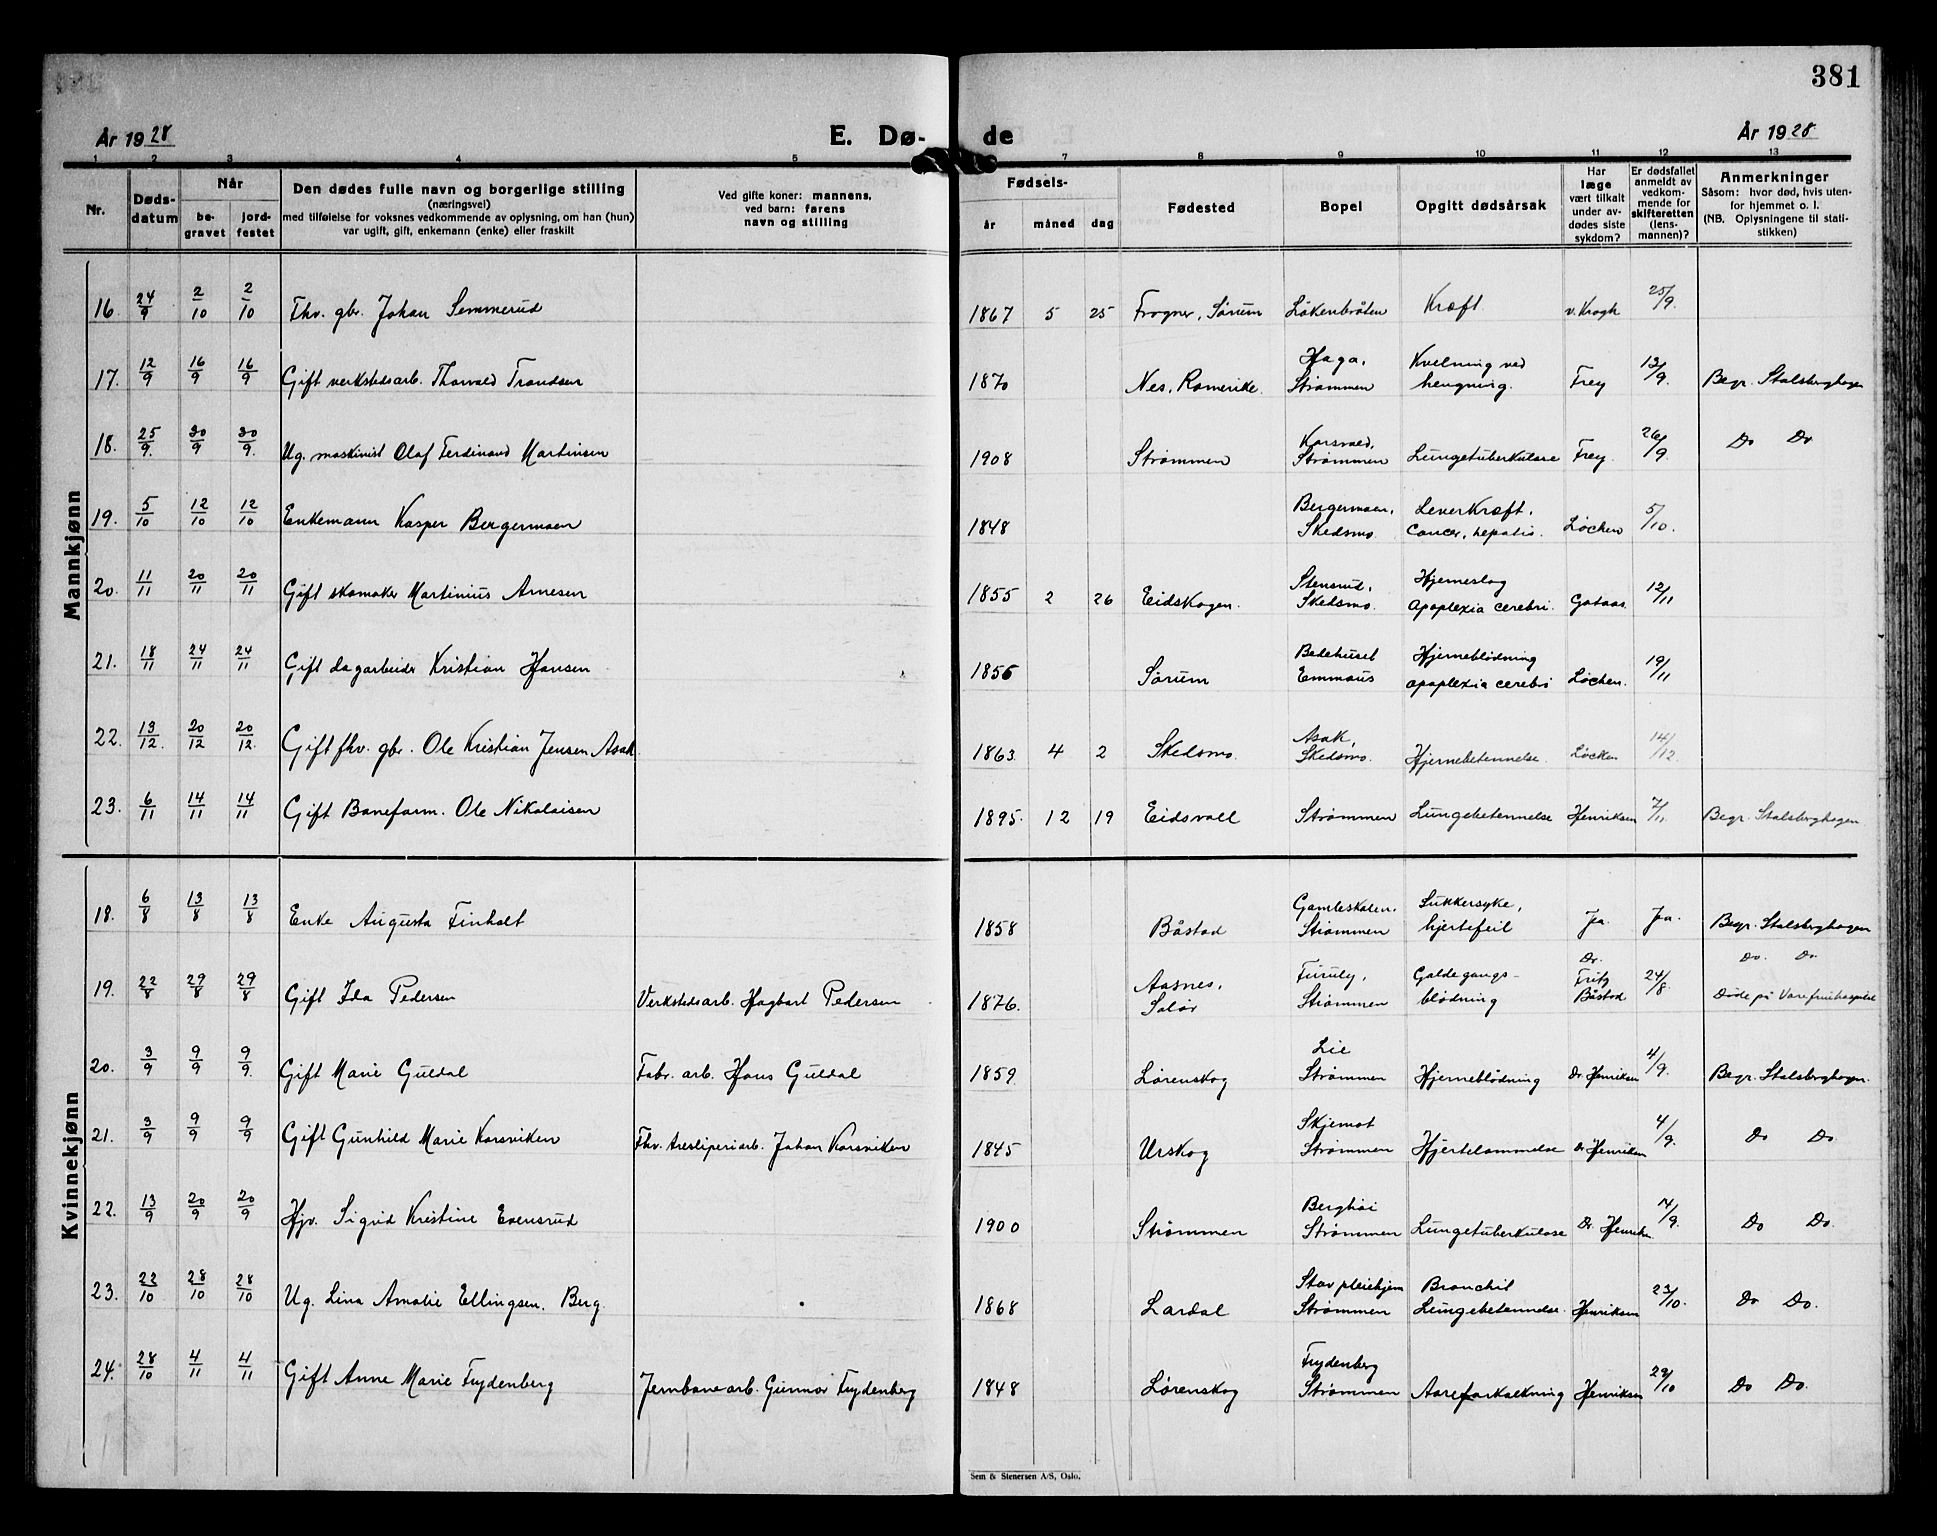 381
År 1928
E. Dø-de
År 1928
1 2 3 4 5 7 8 9 10 11 12 13
Nr.
Døds-datum
Når
be-gravet
jord-festet
Den dødes fulle navn og borgerlige stilling
(næringsvei)
med tilføielse for voksnes vedkommende av oplysning, om han (hun)
var ugift, gift, enkemann (enke) eller fraskilt
Ved gifte koner: mannens,
ved barn: farens
navn og stilling
Fødsels-
år måned dag
Fødested
Bopel
Opgitt dødsårsak
Har
læge
vært tilkalt
under av-
dødes siste
sykdom?
Er dødsfallet
anmeldt av
vedkom-
mende for
skifteretten
(lens-
mannen)?
Anmerkninger
Såsom: hvor død, hvis uten-
for hjemmet o. l.
(NB. Oplysningene til stati-
stikken)
Mannkjønn
16. 24/9 2/10 2/10 Fhv. gbr. Johan Semmerud 1867 5 25 Frogner, Sørum Løkenbråten Kræft v. Krogh 25/9.
17. 12/9 16/9 16/9 Gift verkstedsarb. Thorvald Trondsen 1870 Nes, Romerike. Haga, Strømmen Kvelning ved hengning. Frey 13/9. Begr. Stalsberghagen
18. 25/9. 30/9 30/9. Ug. maskinist Olaf Ferdinand Martinsen 1908 Strømmen Korsvald, Strømmen Lungetuberkulose Frey. 26/9. Do Do
19. 5/10 12/10 12/10 Enkemann Kasper Bergermoen 1848 Bergermoen, Skedsmo. Leverkræft. Cancer, hepatis. Løchen 5/10.
20. 11/11 20/11 20/11 Gift skomaker Martinius Arnesen 1855 2 26 Eidskogen. Stensrud, Skedsmo. Hjerneslag apoplexia cerebri. Gotaas. 12/11
21. 18/11 24/11 24/11 Gift dagarbeider Kristian Hansen 1856 Sørum Bedehuset Emmaus Hjerneblødning apoplexia cerebri Løchen. 19/11
22. 13/12. 20/12 20/12. Gift fhv. gbr. Ole Kristian Jensen Asak 1863 4 2 Skedsmo. Asak, Skedsmo. Hjernebetennelse. Løchen 14/12.
23. 6/11 14/11 14/11 Gift Baneform. Ole Nikolaisen 1895. 12 19 Eidsvoll Strømmen Lungebetennelse Henriksen 7/11. Begr. Stalsberghagen
Kvinnekjønn
18. 6/8 13/8 13/8 Enke Augusta Finholt 1858 Båstad Gamleskolen. Strømmen Sukkersyke, hjertefeil Ja. Ja. Begr. Stalsberghagen
19. 22/8 29/8 29/8 Gift Ida Pedersen Verkstedsarb. Hagbart Pedersen 1876. Aasnes, Solør Furuly, Strømmen Galdegangs-blødning Dr. Fritz Båstad 24/8. Do. Do Døde på Vorefruehospital
20. 3/9 9/9 9/9. Gift Marie Guldal Fabr. arb. Hans Guldal 1859 Lørenskog Lie Strømmen Hjerneblødning Dr. Henriksen 4/9. Begr. Stalsberghagen.
21. 3/9 9/9 9/9 Gift Gunhild Marie Korsviken Fhv. tresliperiarb. Johan Korsviken 1845 Urskog Skjemot Strømmen Hjertelammelse Dr Henriksen 4/9. Do Do.
22. 13/9 20/9 20/9 Hjv. Sigrid Kristine Evensrud 1900 Strømmen Berghøi Strømmen Lungetuberkulose Dr. Henriksen 14/9. Do Do.
23. 22/10 28/10 28/10 Ug. Lina Amalie Ellingsen. Berg. 1868 Lardal Stav pleiehjem Strømmen Bronchit Lungebetennelse. Henriksen 23/10. Do Do.
24. 28/10 4/11 4/11 Gift Anne Marie Frydenberg Jernbanearb. Gunnar Frydenberg 1848 Lørenskog Frydenberg Strømmen Aareforkalkning Henriksen 29/10 Do Do.
Sem & Stenersen A/S, Oslo.